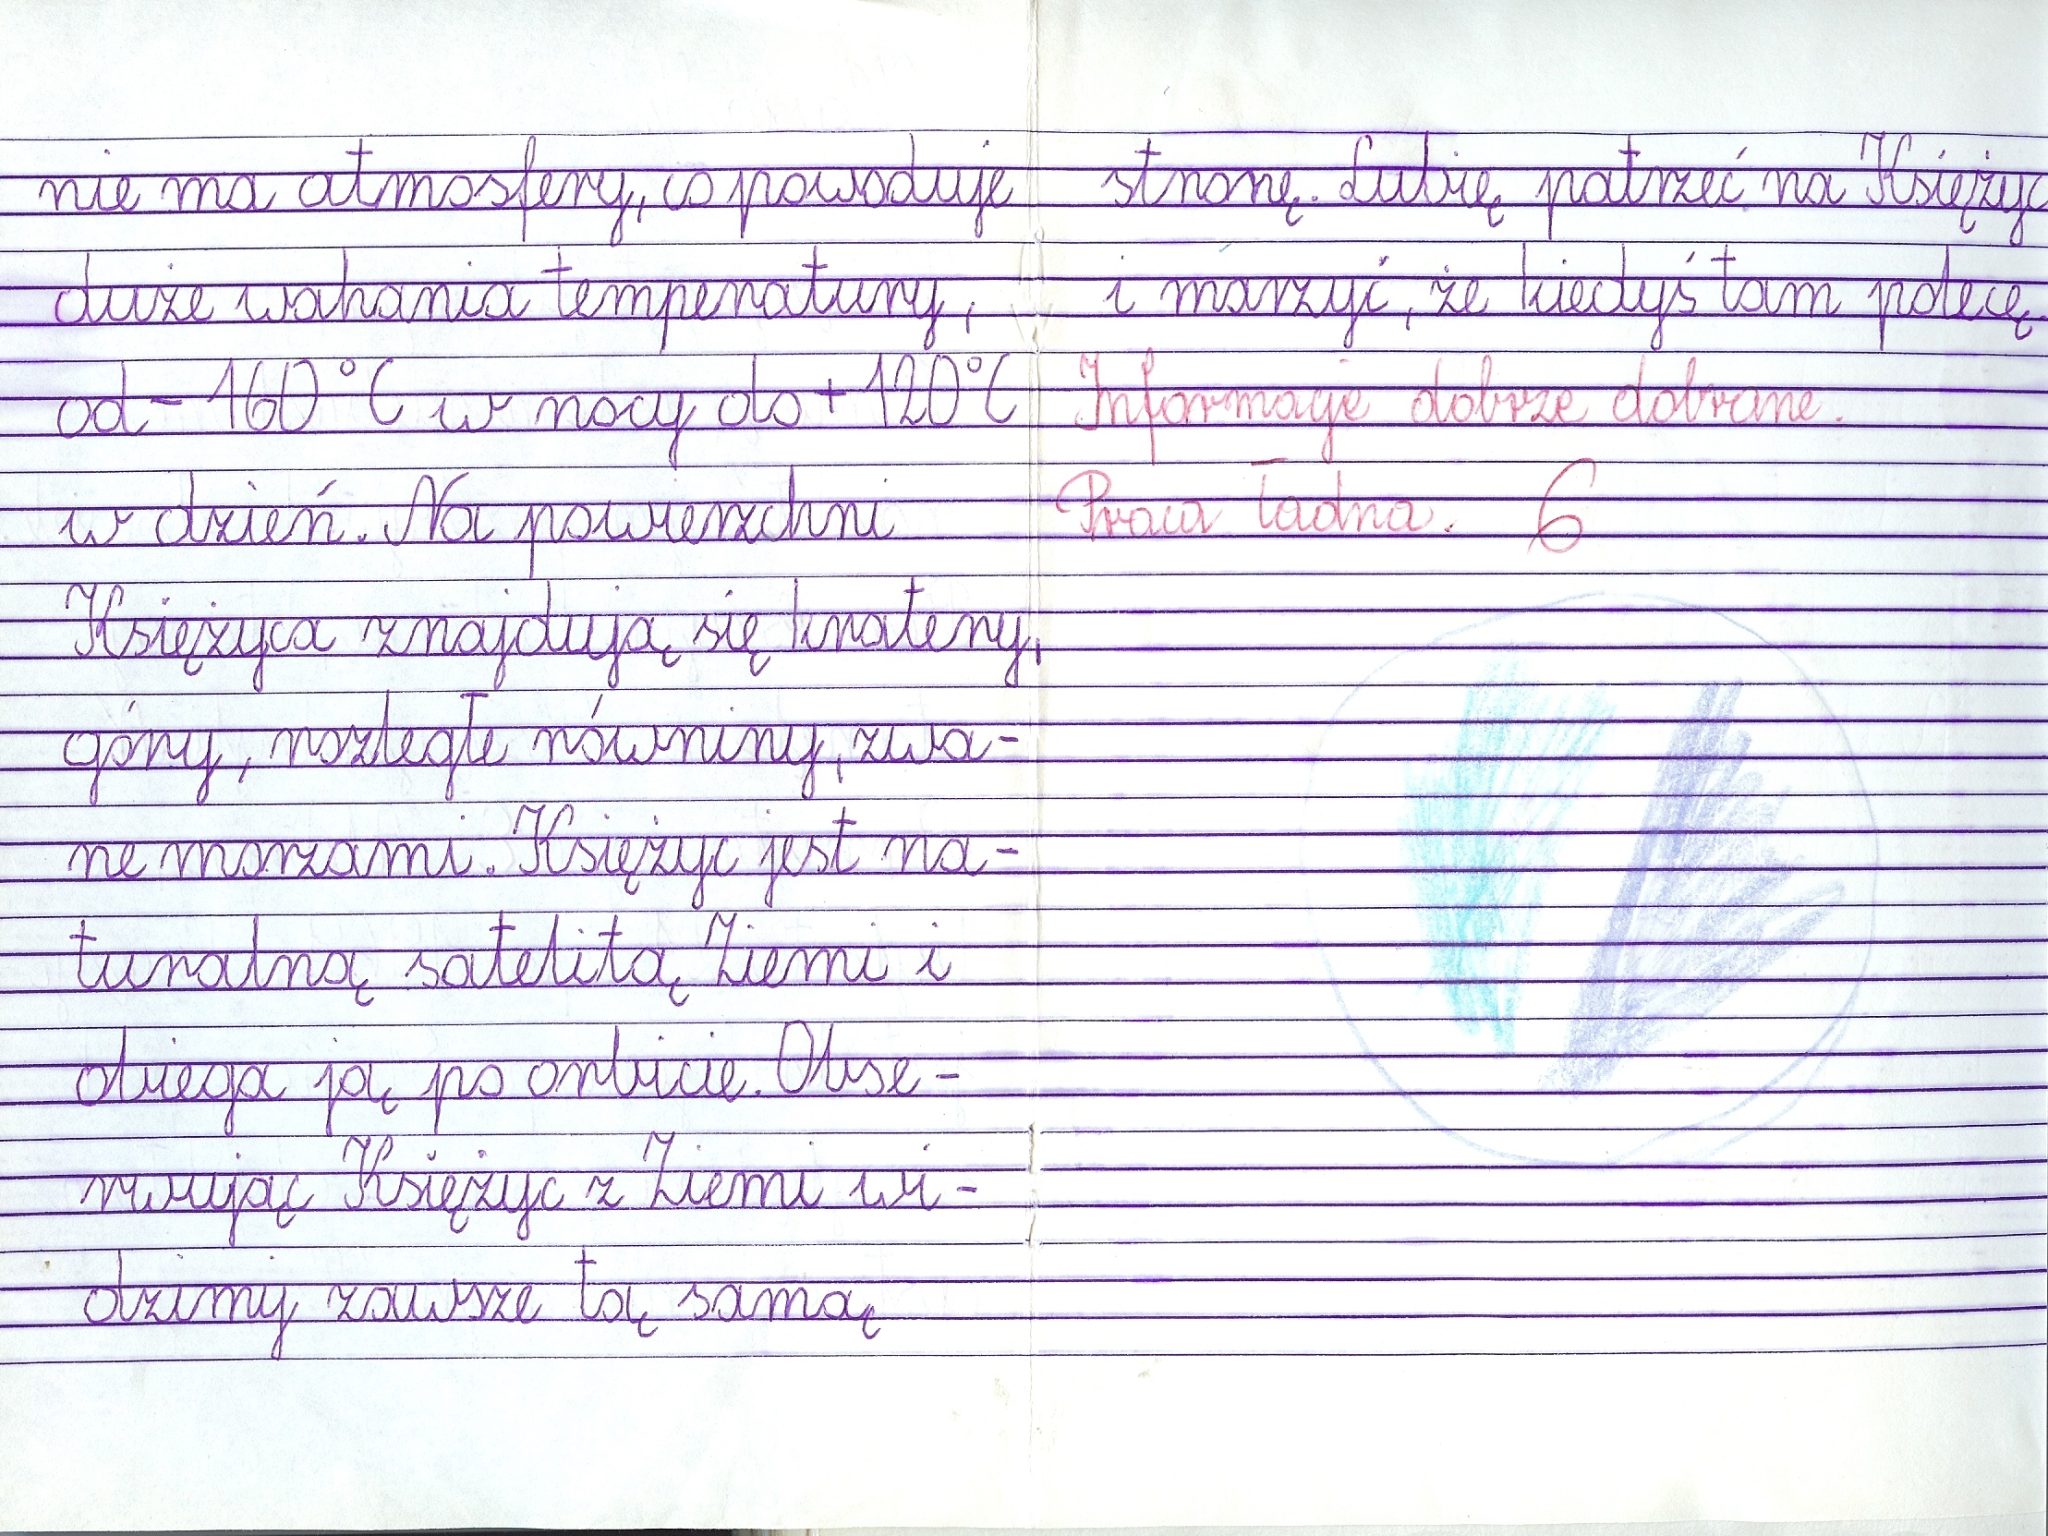 nie ma atmosfery, co powoduje
duże wahania temperatury,
od - 160°C w nocy do + 120°C
w dzień. Na powierzchni
Księżyca znajdują się kratery,
góry, rozległe równiny, zwa-
ne morzami. Księżyc jest na-
turalną satelitą Ziemi i
obiega ją po orbicie. Obse-
rwując Księżyc z Ziemi wi-
dzimy zawsze tą samą
stronę. Lubię patrzeć na Księżyc
i marzyć, że kiedyś tam polecę.
Informacje dobrze dobrane.
Praca ładna. 6